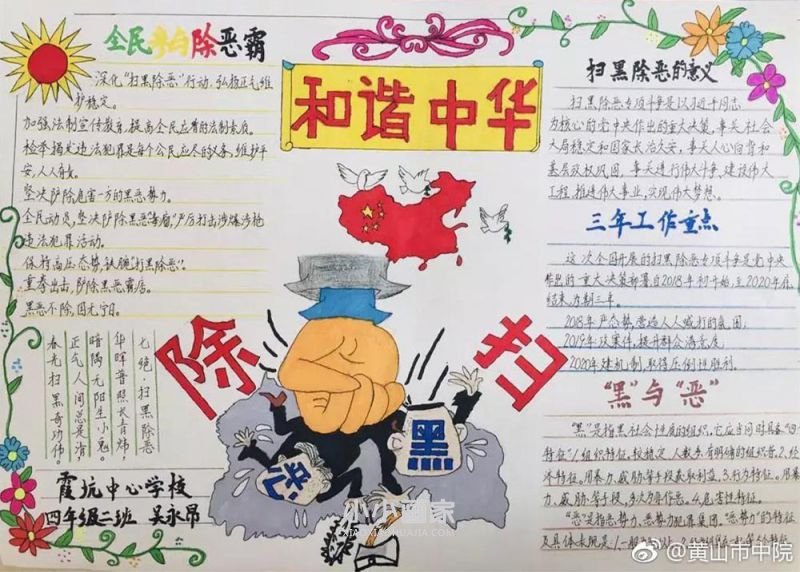 全民参与除恶霸
深化"扫黑除恶"行动，弘扬正气维
护稳定。
加强法制宣传教育，提高全民应有的法制素质。
检举揭发违法犯罪是每个公民应尽的义务，维护平
安，人人有责。
坚决铲除危害一方的黑恶势力。
全民动员，坚决铲除黑恶毒瘤"严厉打击涉爆涉枪
违法犯罪活动。
保持高压态势，铁腕"打黑除恶"。
重拳出击，
黑恶不除，国无宁日。
七绝·扫黑除恶
华晖普照长青炜，
暗隅无阳生小鬼。
正气人间总是清，
春光扫黑奇功伟。
霞坑中心学校
四年级二班 吴永昂
和谐中华
除
扫
黑
恶
扫黑除恶的意义
扫黑除恶专项斗争是以习近平同志
为核心的党中央作出的重大决策，事关社会
大局稳定和国家长治久安，事关人心向背和
基层政权巩固，事关进行伟大斗争，建设伟大
工程，推进伟大事业，实现伟大梦想。
三年工作重点
这次全国开展的扫黑除恶专项斗争是党中央
作出的一重大决策部署自2018年初开始，至2020年底
结束，为期三年。
2018年严态势，营造人人喊打的氛围；
2019年攻案件，提升群众满意度；
2020年建机制，取得压倒性胜利。
"黑"与"恶"
"黑"是指黑社会性质的组织，它应当同时具备"四个
特征"1.组织特征，较稳定，人数多，有明确的组织者；2.经
济特征，用暴力、威胁等手段获取利益；3.行为特征，用暴
力、威胁等手段，多次为非作恶；4.危害性特征。
"恶"是指恶势力、恶势力犯罪集团，"恶势力"的特征
及具体表现是：1.一般
小小画家
XIAOXIAOHUAJIA.COM
@黄山市中院